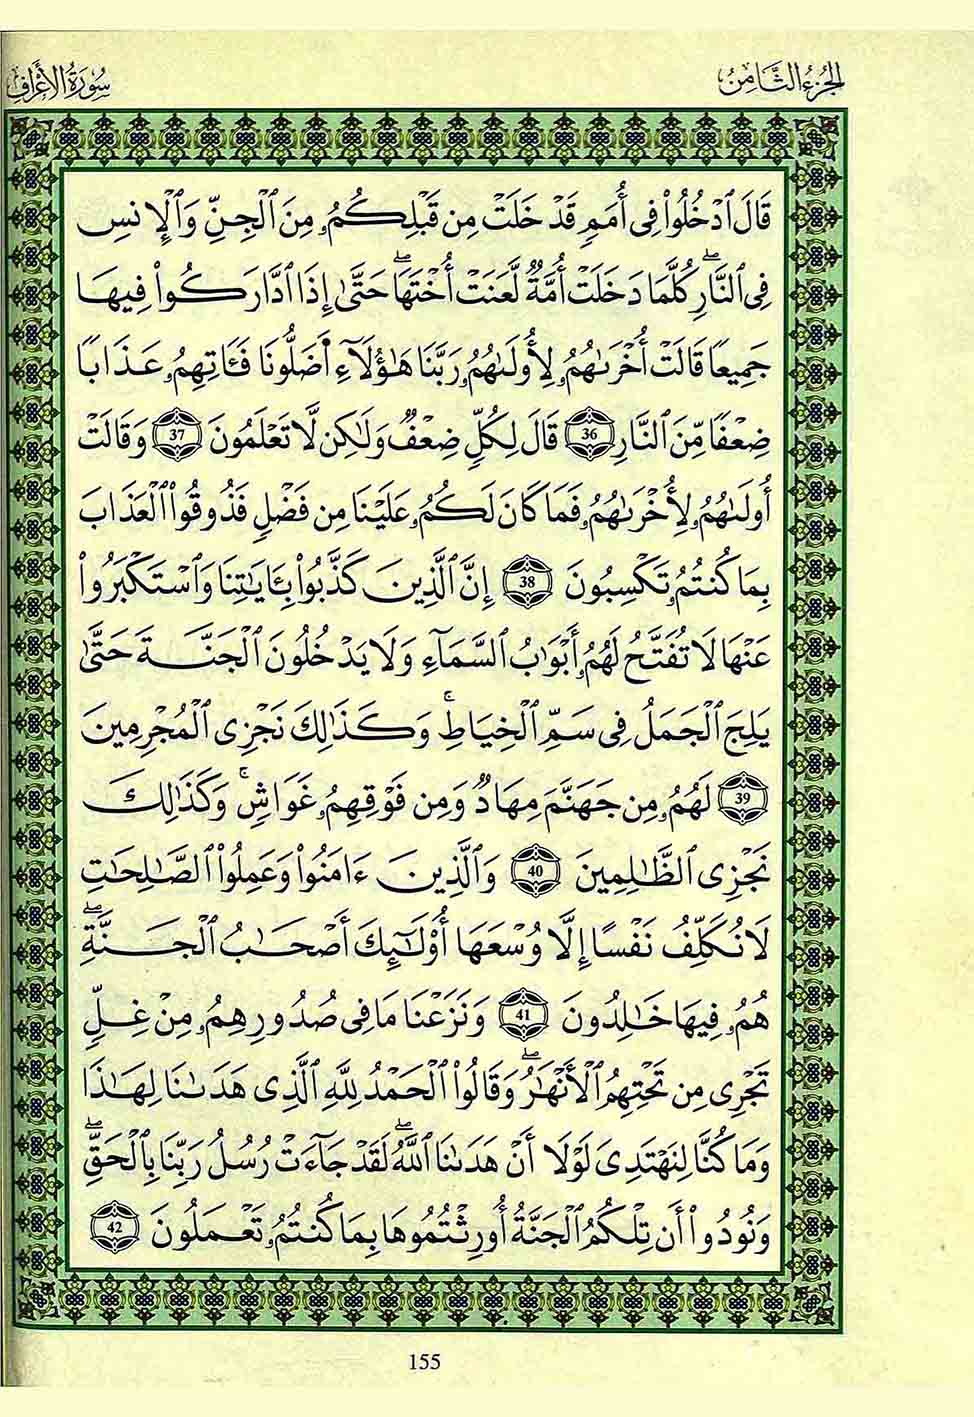 الجزء الثامن
سورة الأعراف
قَالَ اَدْخُلُواْ فِي أُمَمٍ قَدْ خَلَتْ مِن قَبْلِكُمُۥ مِنَ اَلْجِنِّ وَالْإِنسِ
فِي اِلنَّارِۖ كُلَّمَا دَخَلَتْ أُمَّةٌ لَّعَنَتْ أُخْتَهَاۖ حَتَّىٰ إِذَا اَدَّارَكُواْ فِيهَا
جَمِيعًا قَالَتْ أُخْرَىٰهُمُۥ لِأُولَىٰهُمُۥ رَبَّنَا هَٰؤُلَآءِ اَضَلُّونَا فَـَٔاتِهِمُۥ عَذَابًا
ضِعْفًا مِّنَ اَلنَّارِ 36 قَالَ لِكُلٍّ ضِعْفٌ وَلَٰكِن لَّا تَعْلَمُونَ 37 وَقَالَتْ
أُولَىٰهُمُۥ لِأُخْرَىٰهُمُۥ فَمَا كَانَ لَكُمُۥ عَلَيْنَا مِن فَضْلٍ فَذُوقُواْ اُلْعَذَابَ
بِمَا كُنتُمُۥ تَكْسِبُونَ 38 إِنَّ اَلَّذِينَ كَذَّبُواْ بِـَٔايَٰتِنَا وَاسْتَكْبَرُواْ
عَنْهَا لَا تُفَتَّحُ لَهُمُۥ أَبْوَٰبُ اُلسَّمَآءِ وَلَا يَدْخُلُونَ اَلْجَنَّةَ حَتَّىٰ
يَلِجَ اَلْجَمَلُ فِي سَمِّ اِلْخِيَاطِۚ وَكَذَٰلِكَ نَجْزِي اِلْمُجْرِمِينَ
39 لَهُمُۥ مِن جَهَنَّمَ مِهَادٌ وَمِن فَوْقِهِمُۥ غَوَاشٍۚ وَكَذَٰلِكَ
نَجْزِي اِلظَّٰلِمِينَ 40 وَالَّذِينَ ءَامَنُواْ وَعَمِلُواْ اُلصَّٰلِحَٰتِ
لَا نُكَلِّفُ نَفْسًا إِلَّا وُسْعَهَا أُوْلَٰٓئِكَ أَصْحَٰبُ اُلْجَنَّةِۖ
هُمُۥ فِيهَا خَٰلِدُونَ 41 وَنَزَعْنَا مَا فِي صُدُورِهِمُۥ مِنْ غِلٍّ
تَجْرِي مِن تَحْتِهِمُ اُلْأَنْهَٰرُۖ وَقَالُواْ اُلْحَمْدُ لِلهِ اِلَّذِي هَدَىٰنَا لِهَٰذَا
وَمَا كُنَّا لِنَهْتَدِيَ لَوْلَا أَنْ هَدَىٰنَا اَللَّهُۖ لَقَدْ جَآءَتْ رُسُلُ رَبِّنَا بِالْحَقِّۖ
وَنُودُواْ أَن تِلْكُمُ اُلْجَنَّةُ أُورِثْتُمُوهَا بِمَا كُنتُمُۥ تَعْمَلُونَ 42
155